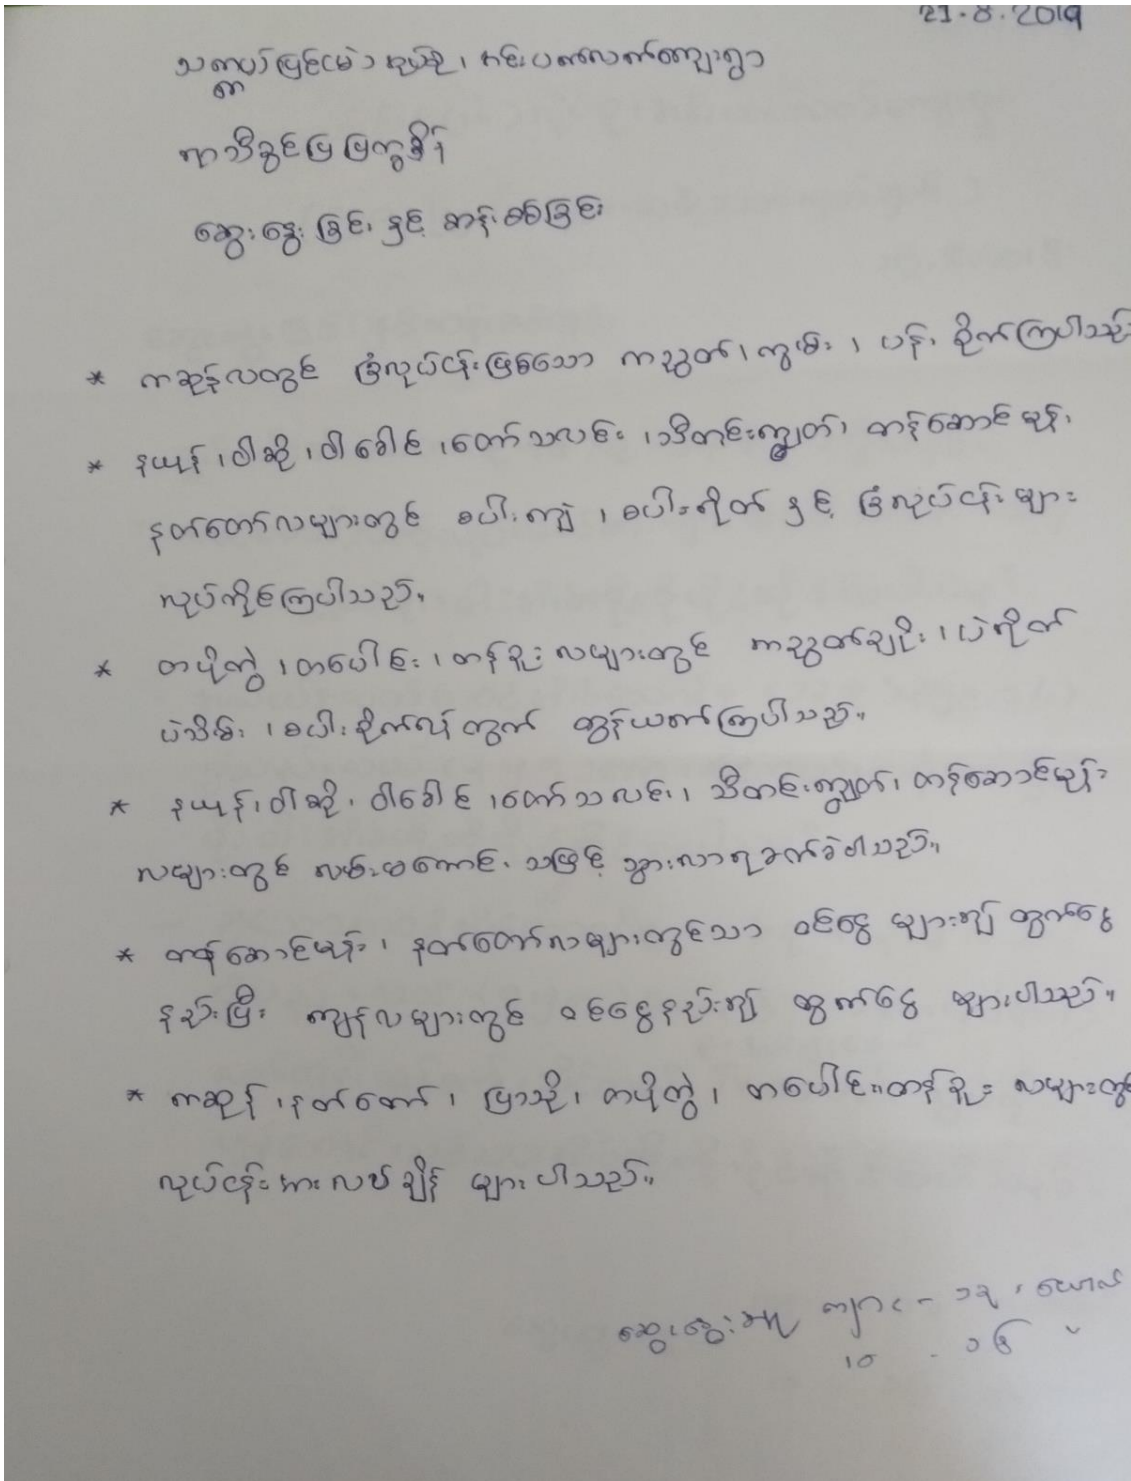 21.8.2019
အုပ်စု၊ ကျေးရွာ
ရာသီခွင်ပြ ပြက္ခဒိန်
ဆွေးနွေးခြင်း နှင့် ဆန်းစစ်ခြင်း
* ကဆုန်လတွင် ခြံလုပ်ငန်းဖြစ်သော ကညွတ်၊ ကွမ်း၊ ပန်း စိုက်ကြပါသည်
* နယုန်၊ ဝါဆို၊ ဝါခေါင်၊ တော်သလင်း၊ သီတင်းကျွတ်၊ တန်ဆောင်မုန်း
နတ်တော်လများတွင် စပါးကျဲ၊ စပါးရိတ် နှင့် ခြံလုပ်ငန်းများ
လုပ်ကိုင်ကြပါသည်။
* တပို့တွဲ၊ တပေါင်း၊ တန်ခူးလများတွင် ကညွတ်ချိုး၊ ပဲရိတ်
ပဲသိမ်း၊ စပါးစိုက်ရန်တွက် ထွန်ယက်ကြပါသည်။
* နယုန်၊ ဝါဆို၊ ဝါခေါင်၊ တော်သလင်း၊ သီတင်းကျွတ်၊ တန်ဆောင်မုန်း
လများတွင် လမ်းမကောင်းသဖြင့် သွားလာရခက်ခဲပါသည်။
* တန်ဆောင်မုန်း၊ နတ်တော်လများတွင်သာ ဝင်ငွေများ၍ ထွက်ငွေ
နည်းပြီး ကျန်လများတွင် ဝင်ငွေနည်း၍ ထွက်ငွေ များပါသည်။
* ကဆုန်၊ နတ်တော်၊ ပြာသို၊ တပို့တွဲ၊ တပေါင်း၊ တန်ခူး လများတွင်
လုပ်ငန်းအားလပ်ချိန် များပါသည်။
ဆွေးနွေးသူ